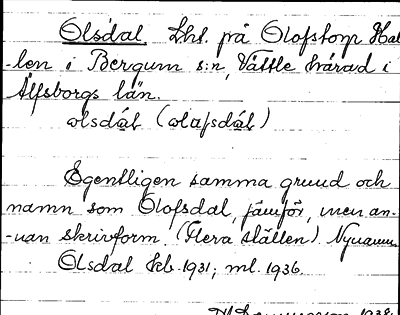 Olsdal. Lhs. på Olofstorp Hal-
-len i Bergum s:n, Vättle härad i
Älfsborgs län.
ɷlsdɑ̄l (ɷlɑfsdɑ̄l)
Egentligen samma grund och
namn som Olofsdal, jämför, men an-
-nan skrivform (Flera ställen). Nynamn.
Olsdal kb. 1931; ml. 1936.
1938